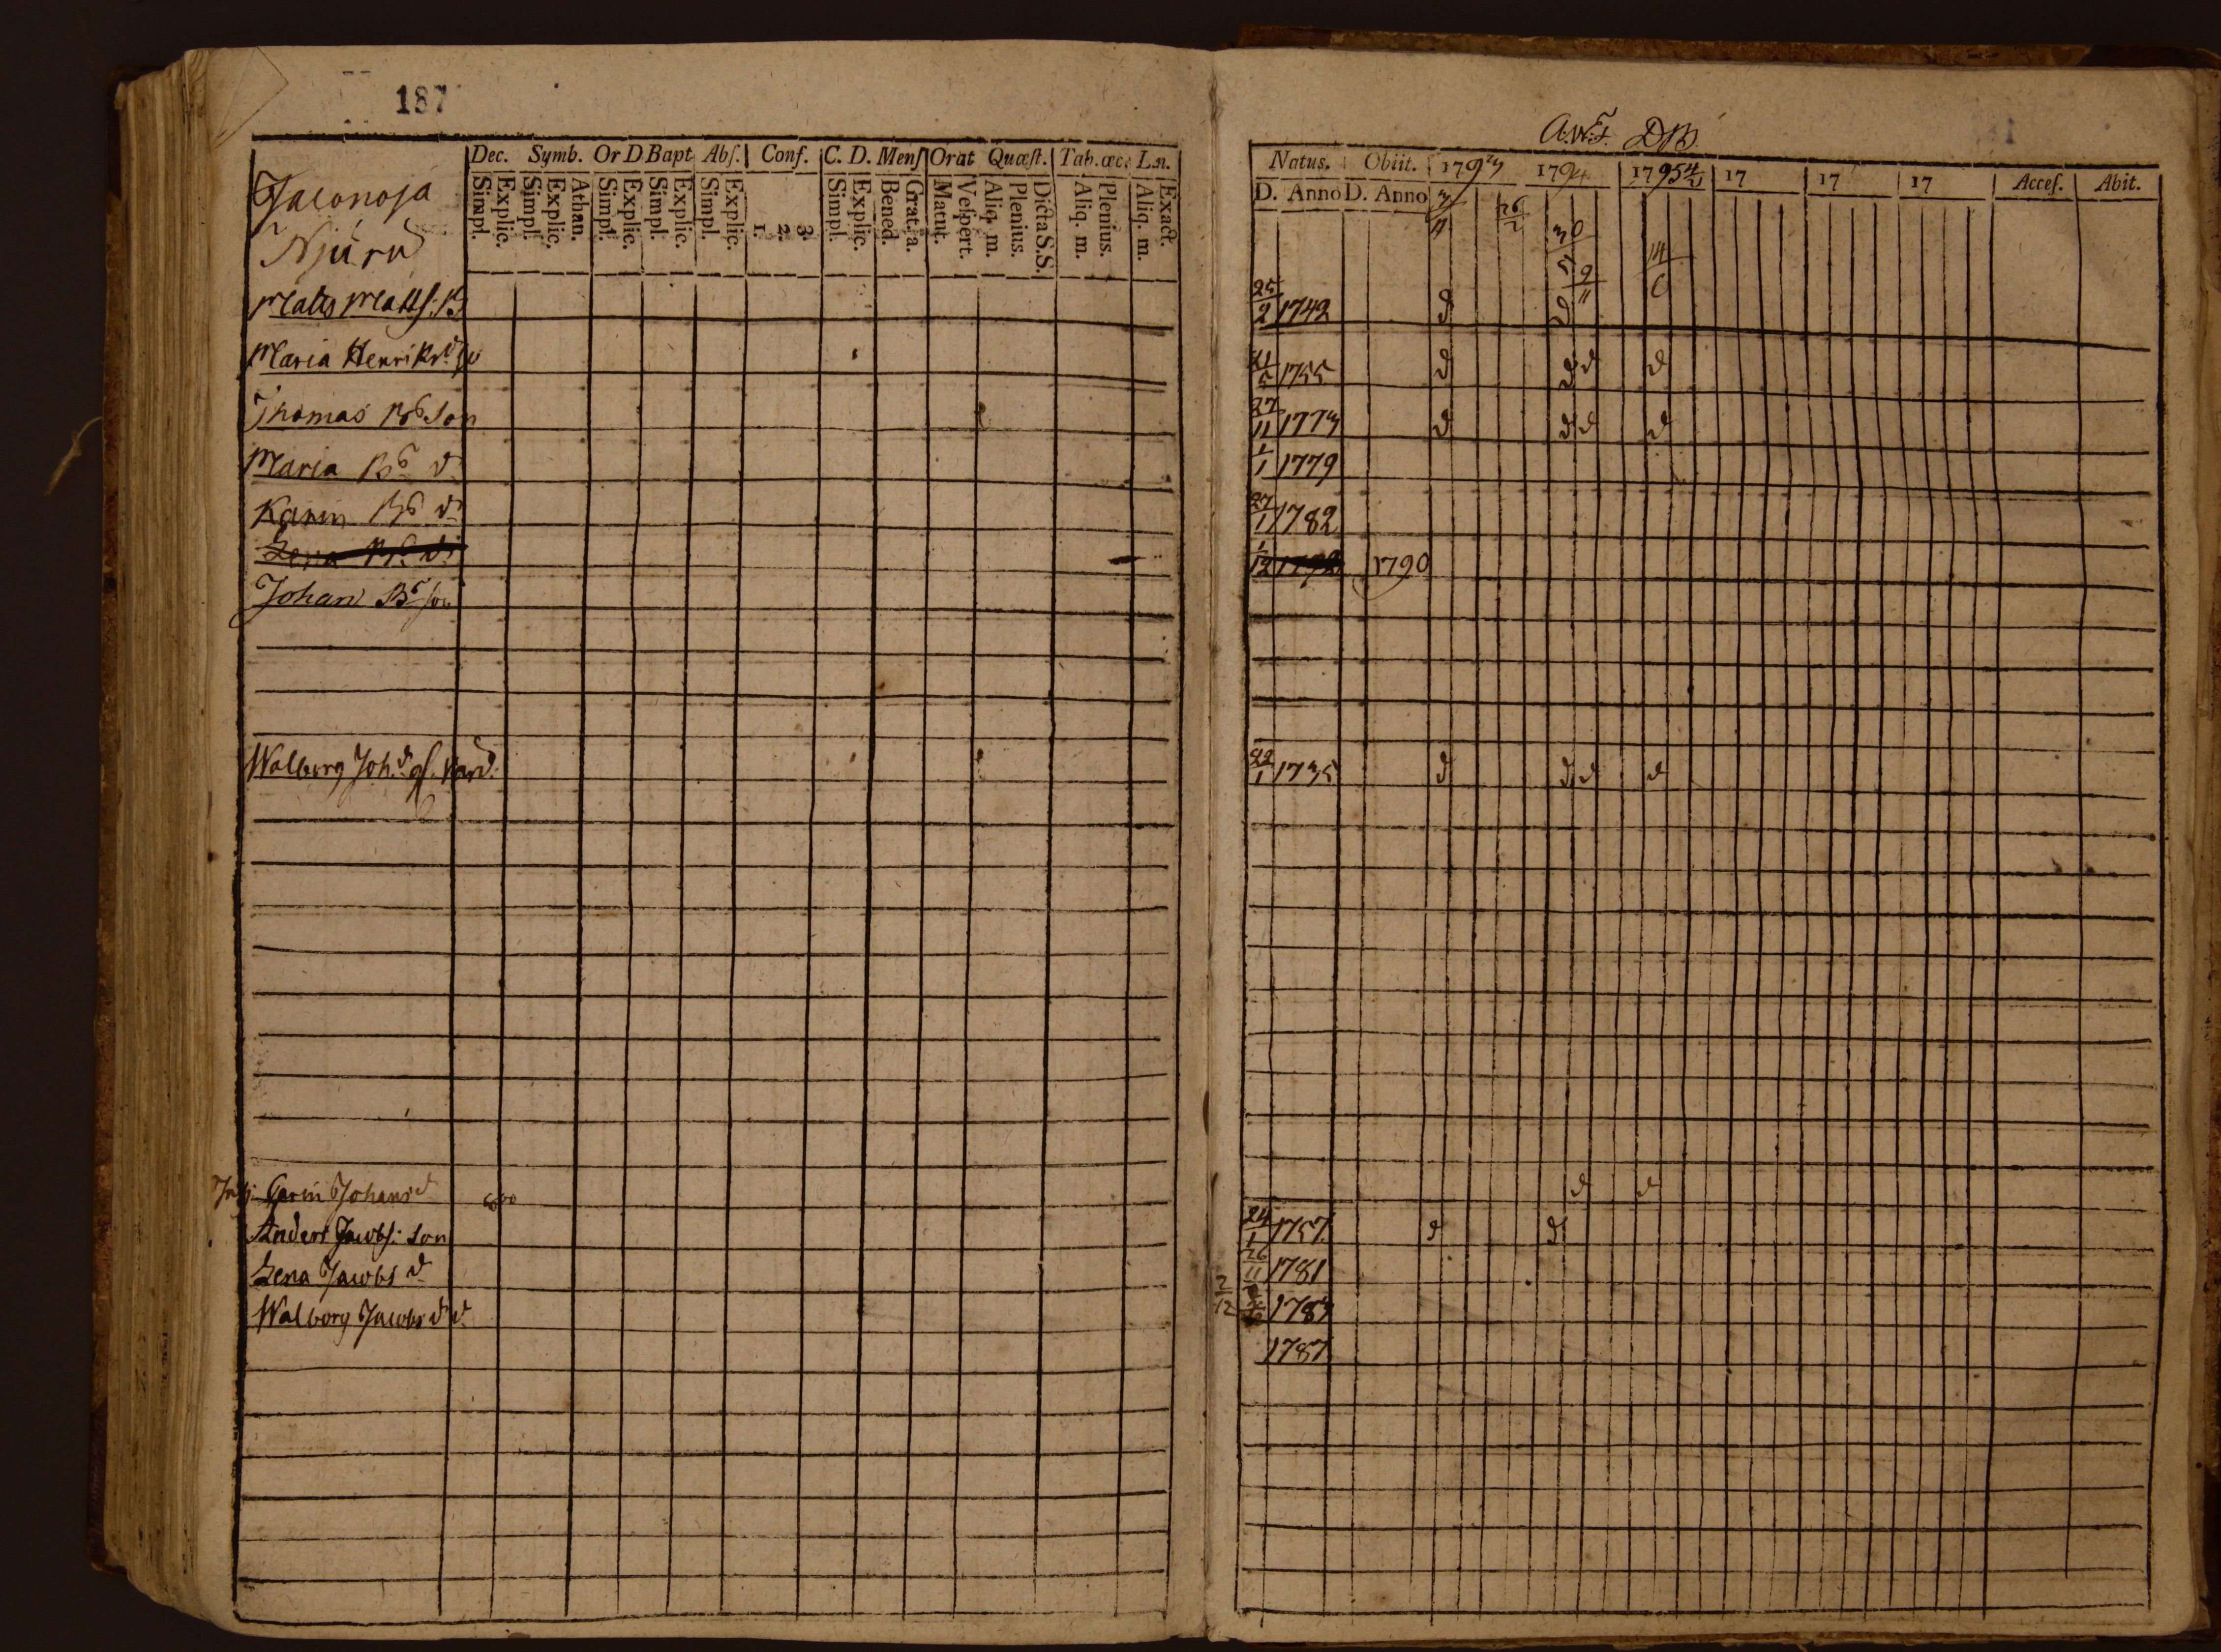 187
Dec. Symb. Or D Bapt Abſ. Conf. C. D. Menſ Orat Quæſt. Tab. œc. L.n.
Simpl. Explic. Simpl. Explic. Athan. Simpl. Explic. Simpl. Explic. Simpl. Explic. 1. 2. 3. Simpl. Explic. Bened. Grat. a. Matut. Veſpert. Aliq. m. Plenius. Dicta S.S. Aliq. m. Plenius. Aliq. m. Exact.
Jaconoja
Njurů
Matts Matts: B
Maria Henriksd
Thomas Bs Son
Maria Bs d
Karin Bs d
Lena Bs d:
Johan Bs son
Walborg Joh.d
Carin Johansd
Anders Jacobs: son
Lena Jacobs d
Walborg Jacobs d
Natus. Obiit. 1793 1794 1795 17 17 17 Acceſ. Abit.
D. Anno D. Anno
3/11 26/2 30/5 9/11 14/6
25/2 1742 d d
21/5 1755 d d d d
27/11 1773 d d d d
1/1 1779
27/1 1782
1/12 1790
22/1 1735 d d d d
d d
24/1 1757 d d
26/11 1781
2/12 1783
1787